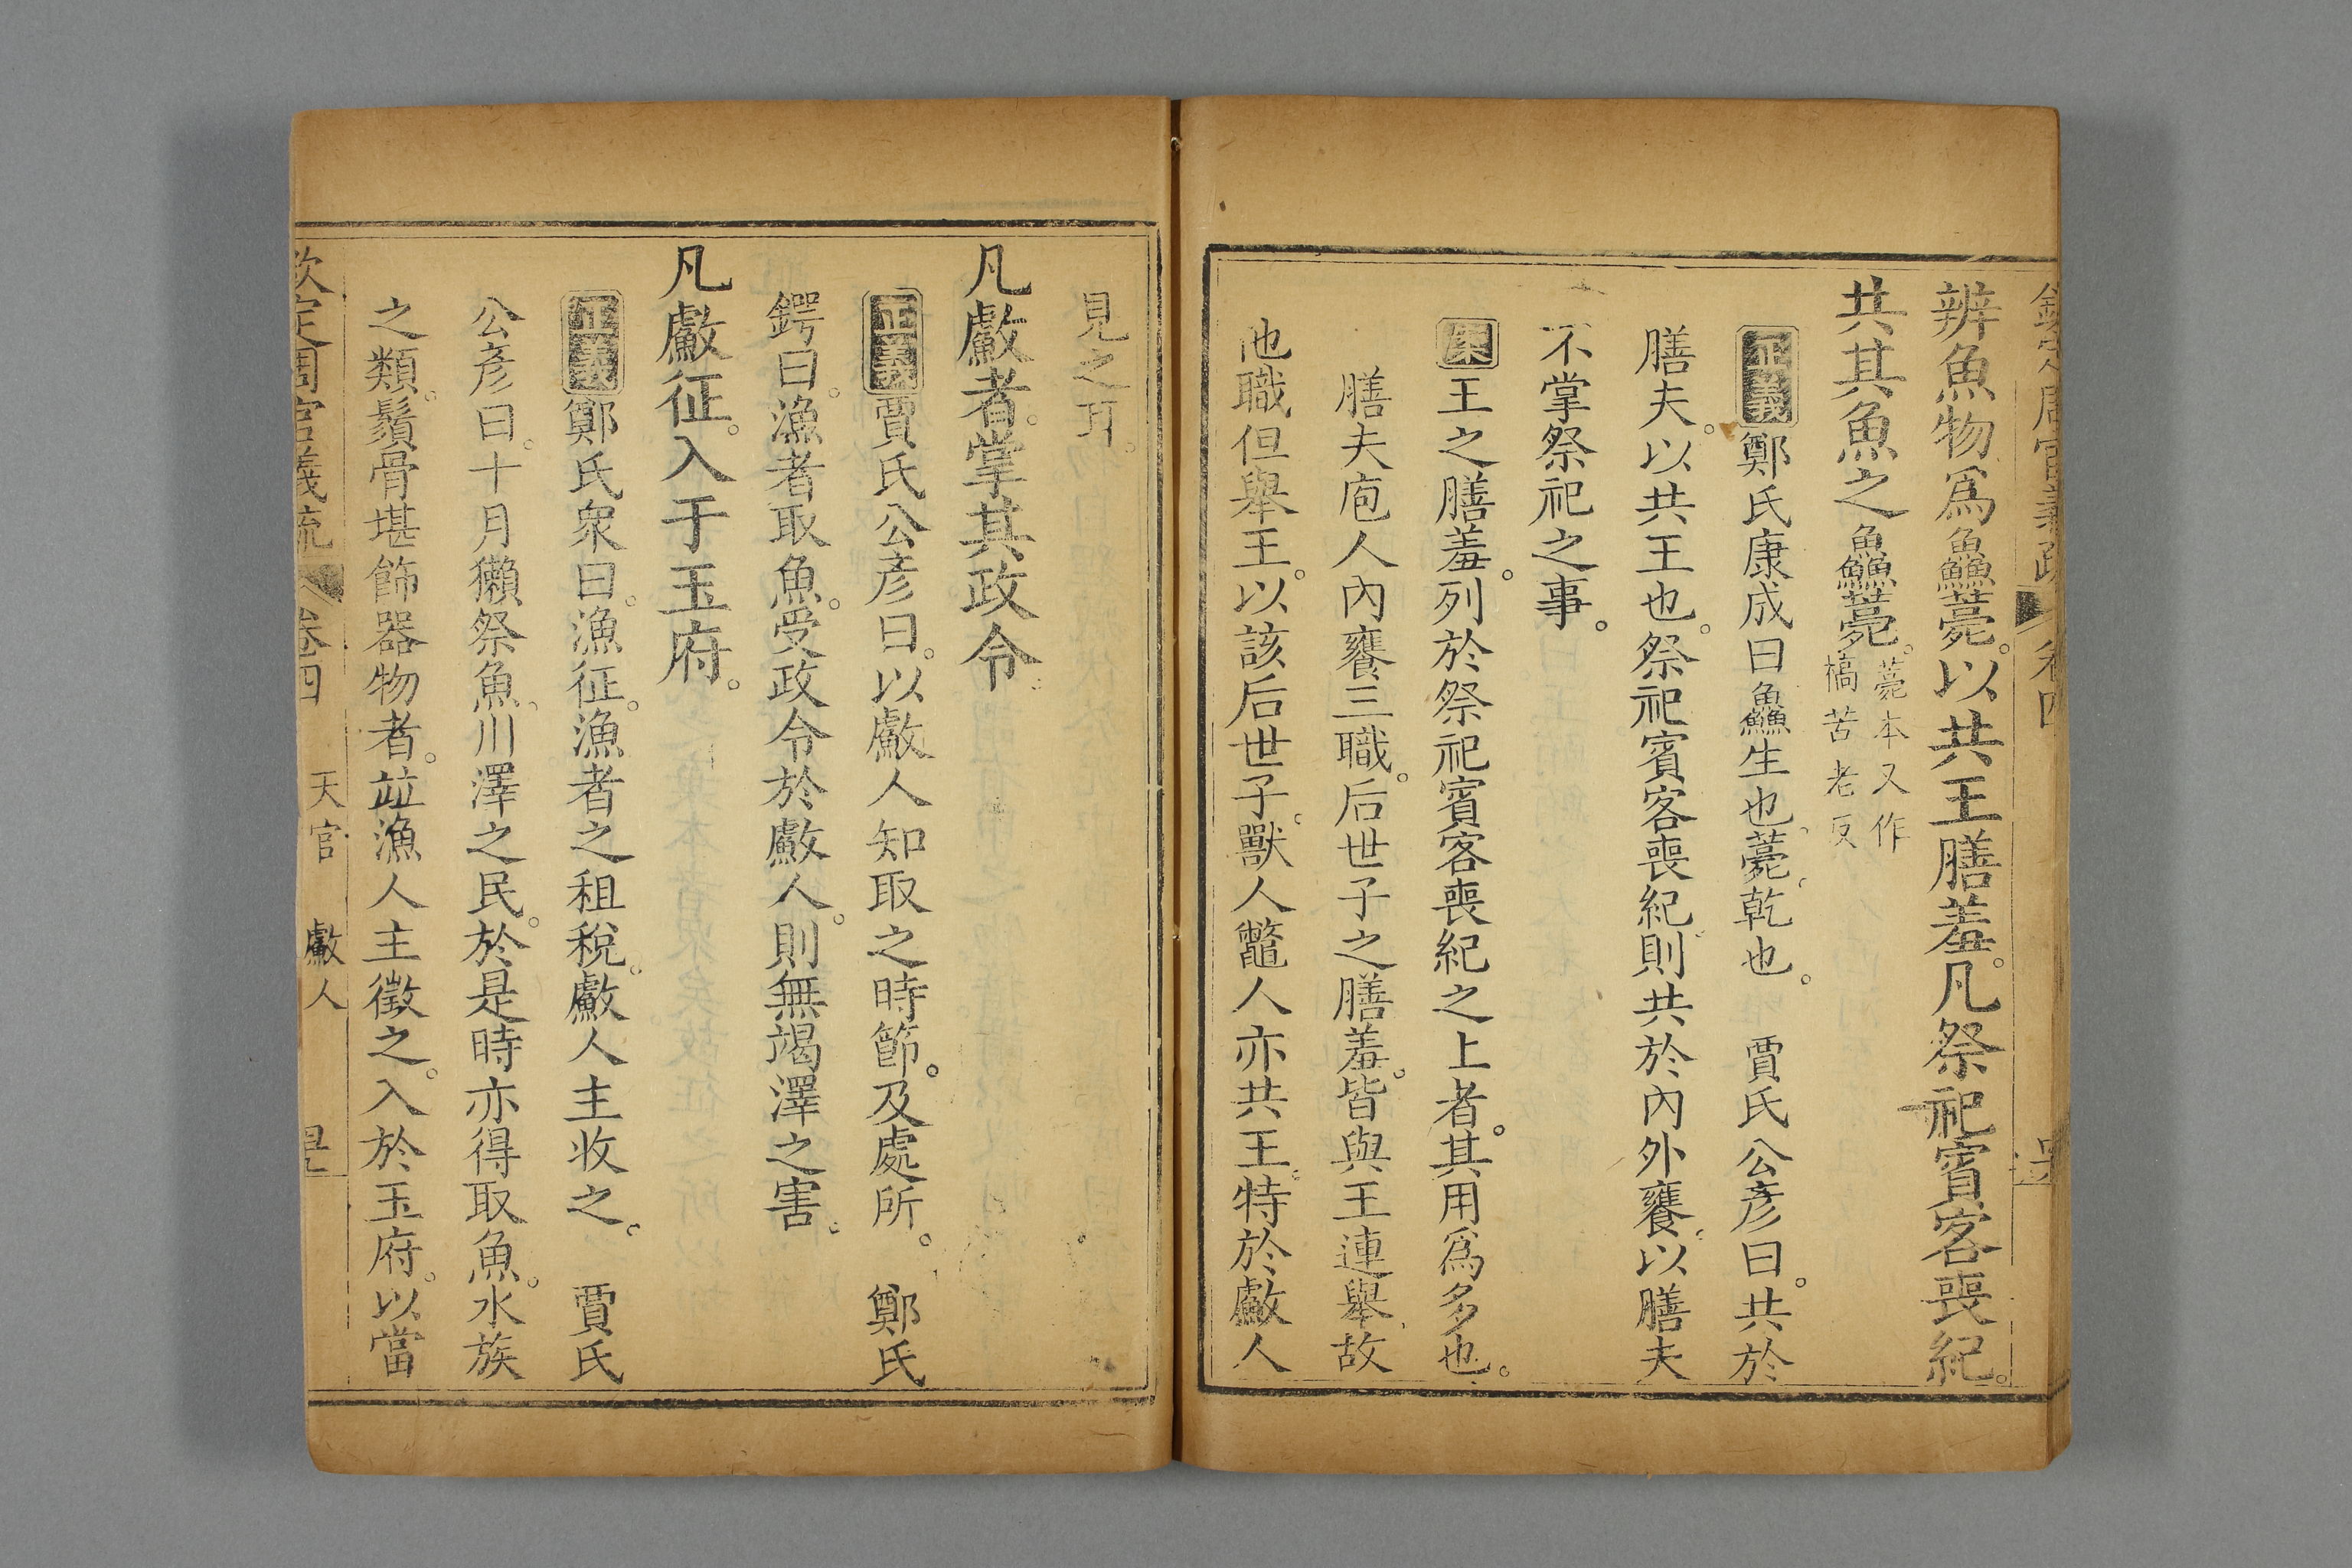 辨魚物爲鱻薧。以共王膳羞。凡祭祀賓客喪紀。
共其魚之鱻薧。薧本又作
槁苦老反
正義鄭氏康成曰鱻生也。薧乾也。 賈氏公彥曰。共於
膳夫。以共王也。祭祀賓客喪紀則共於內外饔。以膳夫
不掌祭祀之事。
案王之膳羞。列於祭祀賓客喪紀之上者。其用爲多也。
膳夫庖人內饔三職。后世子之膳羞。皆與王連舉。故
他職但舉王。以該后世子。獸人鼈人亦共王。特於䱷人
見之耳。
凡䱷者。掌其政令。
正義賈氏公彥曰。以䱷人知取之時節。及處所。 鄭氏
鍔曰。漁者取魚。受政令於䱷人。則無竭澤之害。
凡䱷征。入于玉府。
正義鄭氏衆曰。漁征。漁者之租稅。䱷人主收之。 賈氏
公彥曰。十月獺祭魚。川澤之民。於是時亦得取魚。水族
之類。鬚骨堪飾器物者。竝漁人主徵之。入於玉府。以當
欽定周官義疏 卷四 天官 䱷人